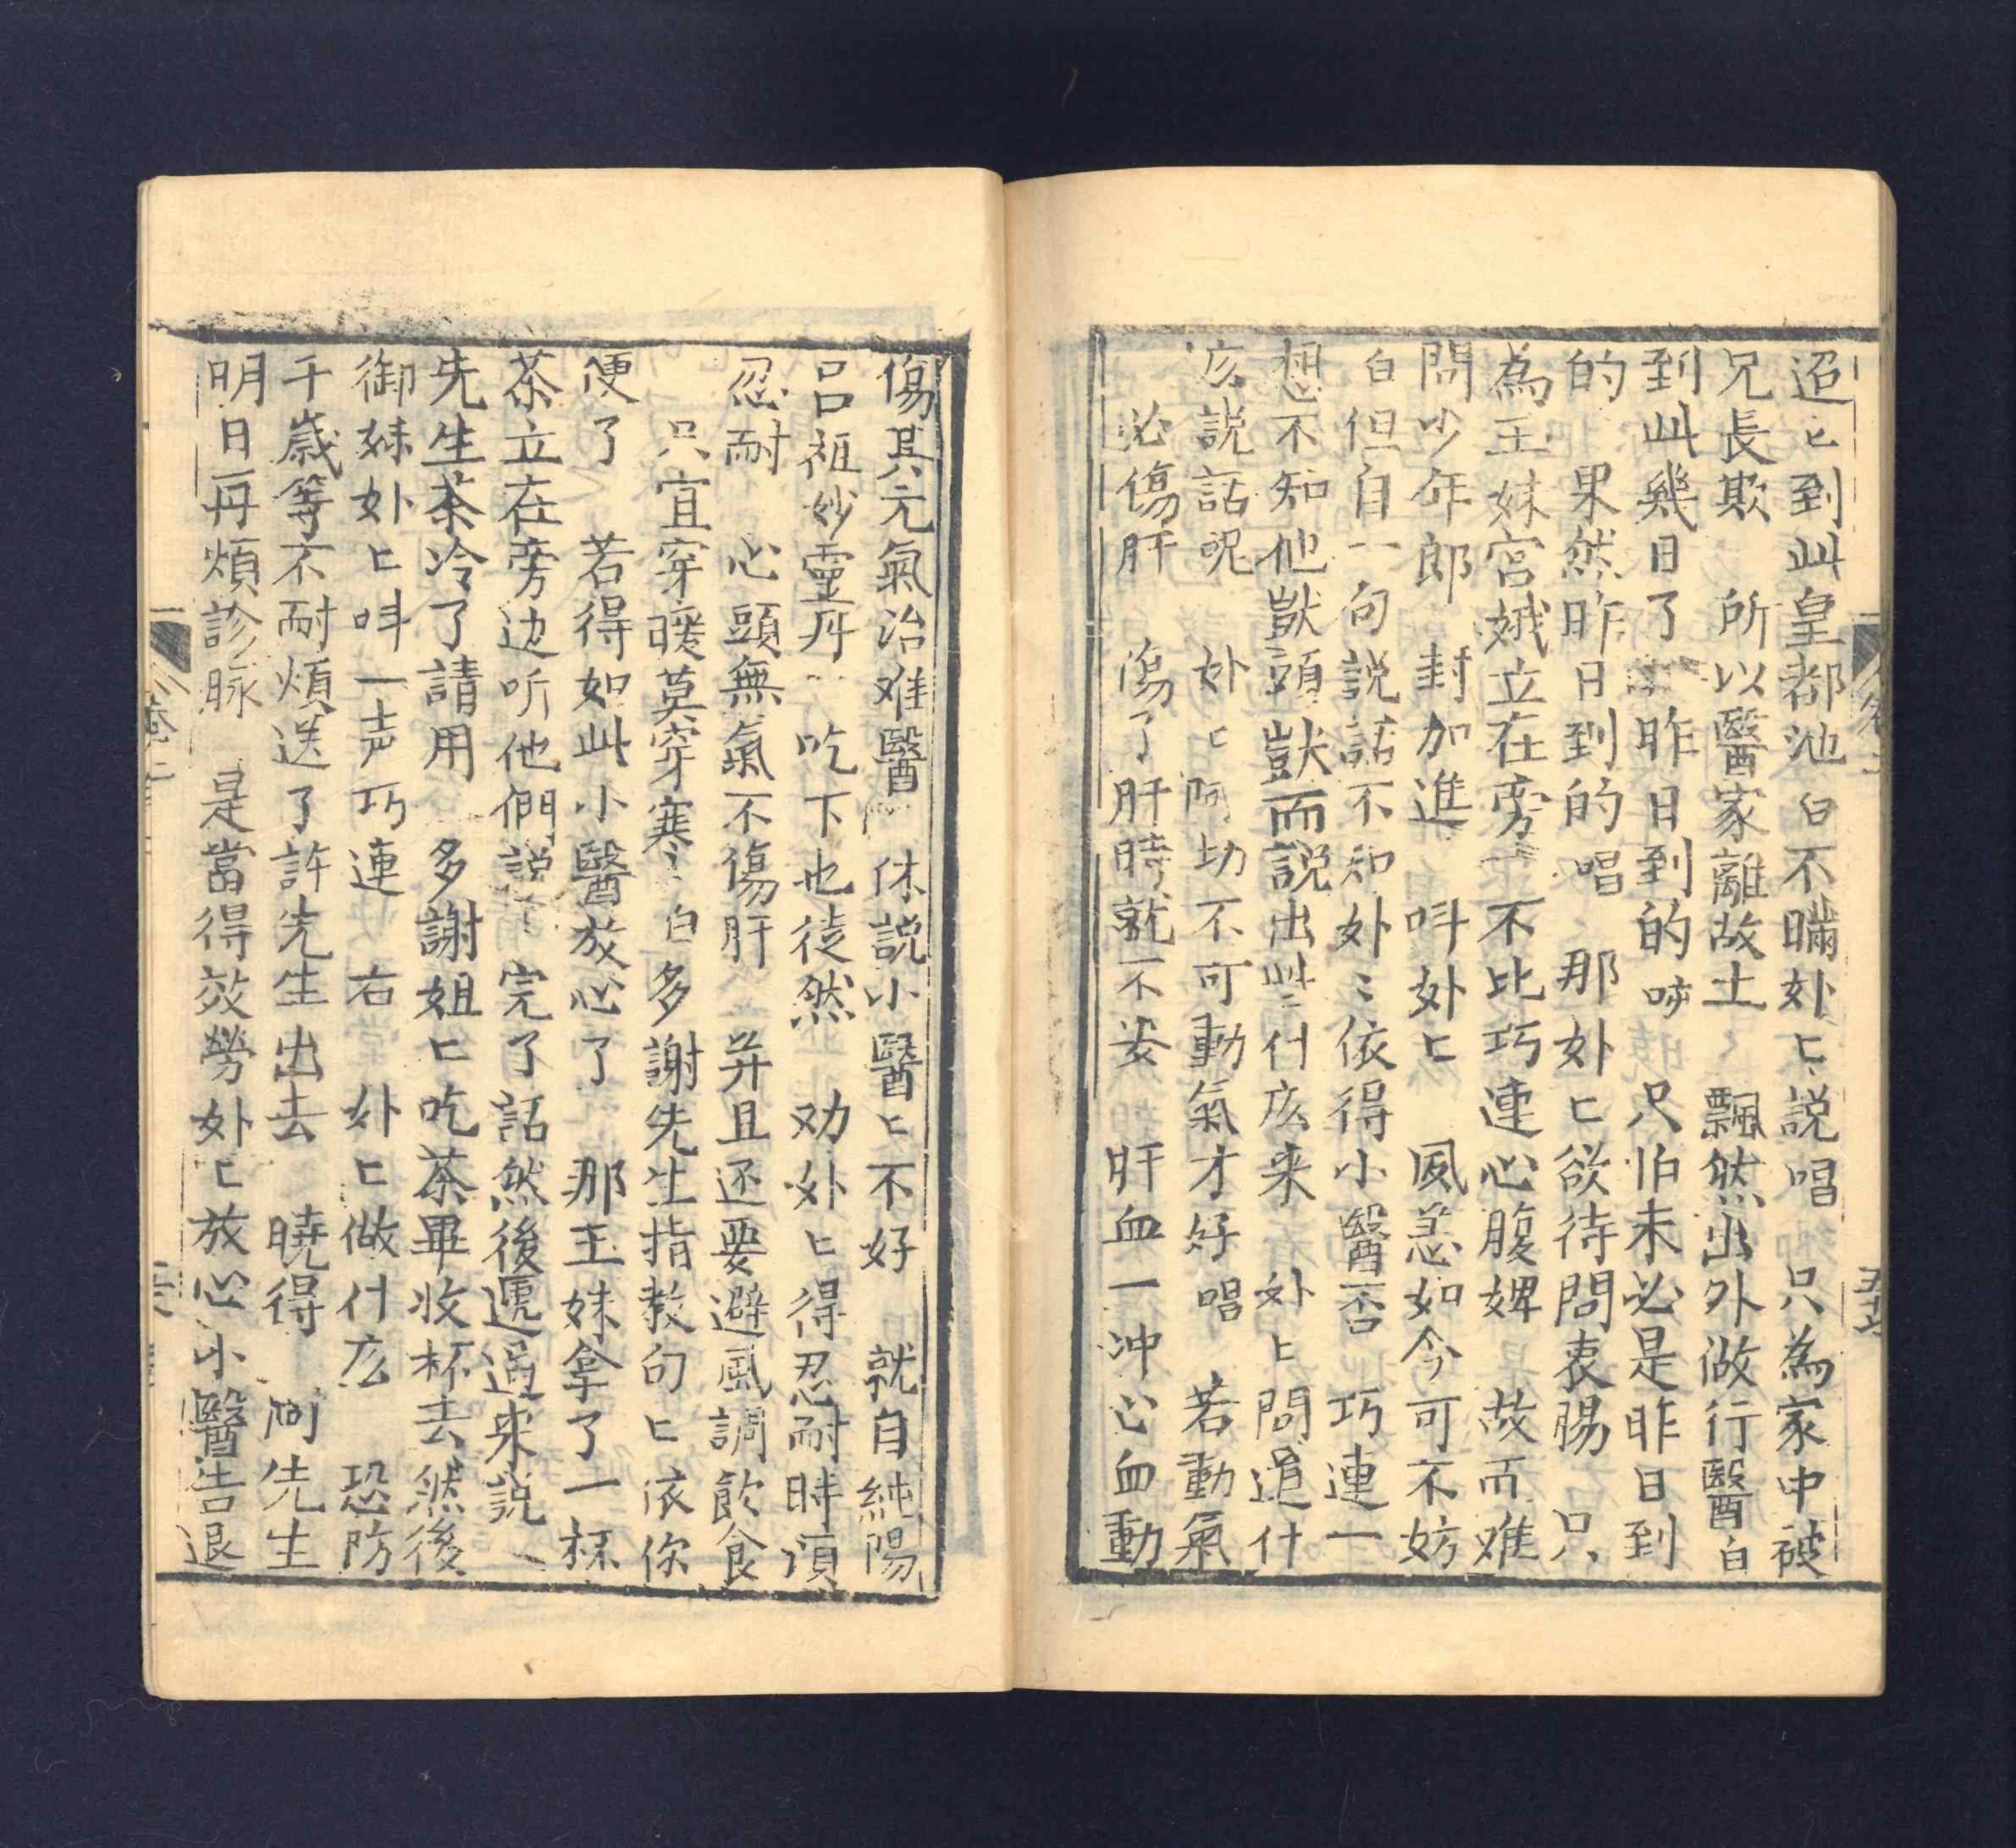 迢匕到此皇都池 白不瞞姅匕説唱 只為家中被
兄長欺 所以醫家離故土 飄然出外做行醫 白
到此幾日了 昨日到的 只怕未必是昨日到
的 果然昨日到的 唱 那姅匕欲待問衷腸 只
為王妹宮娥立在旁 不比巧連心腹婢 故而难
問少年郎 封加進 呌姅匕 風恙如今可不妨
白但自一句説話不知姅匕依得小醫否 巧連一
想不知他獃頭獃而説出些什庅来 姅匕問道什
庅説話呢 姅匕阿 切不可動氣才好 唱 若動氣
必傷肝 傷了肝時就不安 肝血一冲心血動
傷其元氣治难醫 休説小醫匕不好 就自純陽
吕祖妙靈丹 吃下也徒然 劝姅匕得忍耐時須
忍耐 心頭無氣不傷肝 并且还要避風調飲食
只宜穿暖莫穿寒 白 多謝先生指教句匕依你
便了 若得如此小醫放心了 那王妹拿了一杯
茶立在旁边听他們説 完了話然後遞過来説
先生茶冷了請用 多謝姐匕吃茶畢收杯去然後
御妹姅匕呌一声巧連 右 姅匕做什庅 恐防
千歲等不耐煩送了許先生出去 曉得 阿先生
明日再煩診脉 是當得效勞姅匕放心小醫告退